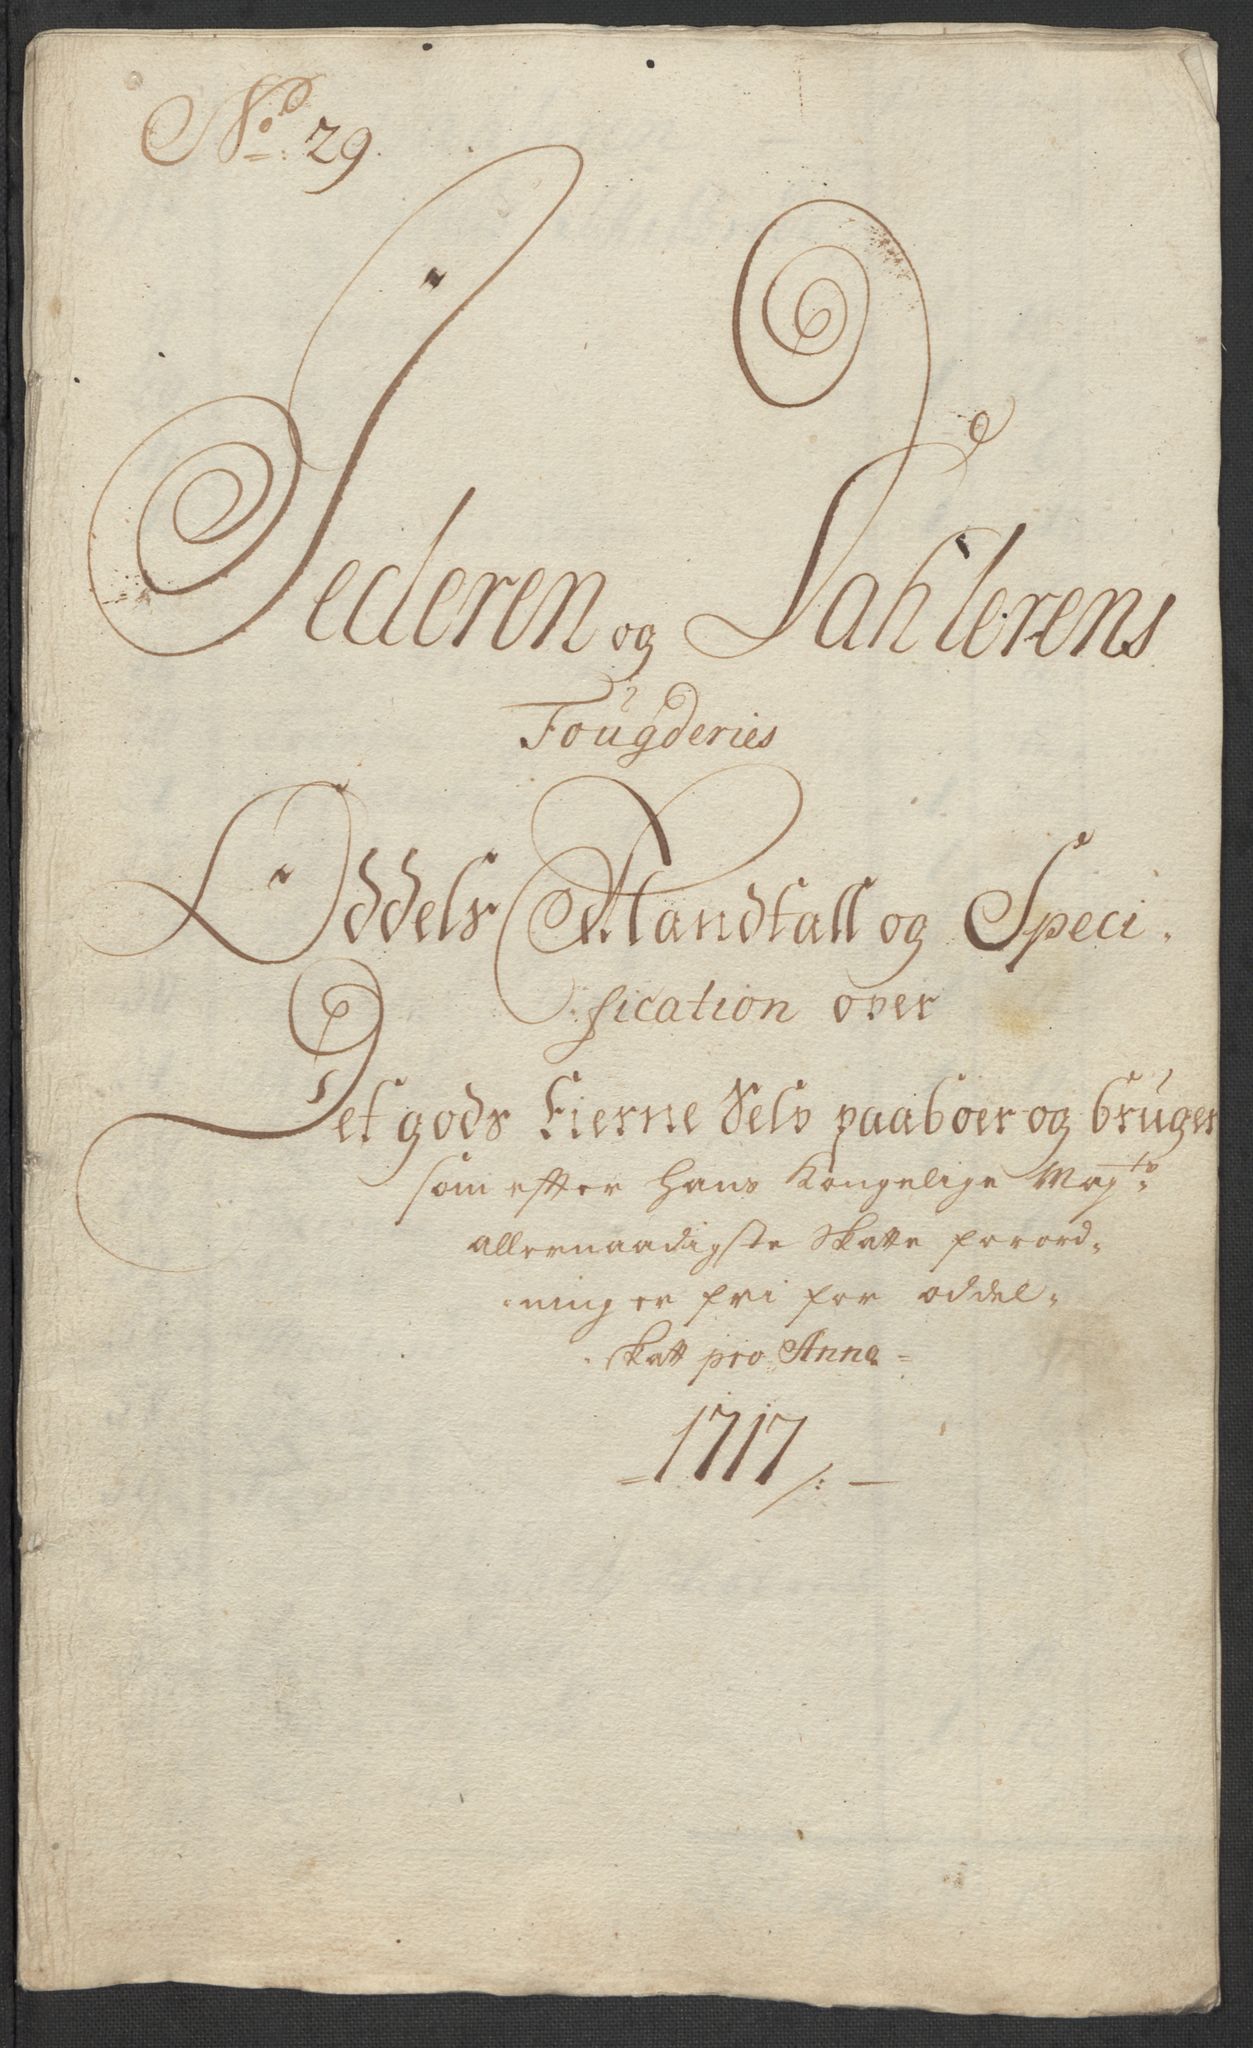 No: 29.
Jederen og Dahlerens
Fougderies
Oddels Mandtall og Speci-
fication over
Det gods Eierne Selv paaboer og bruger
som efter hans Kongelige Mayts:
allernaadigste Skatte forord-
ning er fri for oddel-
skatt pro Anno
1717